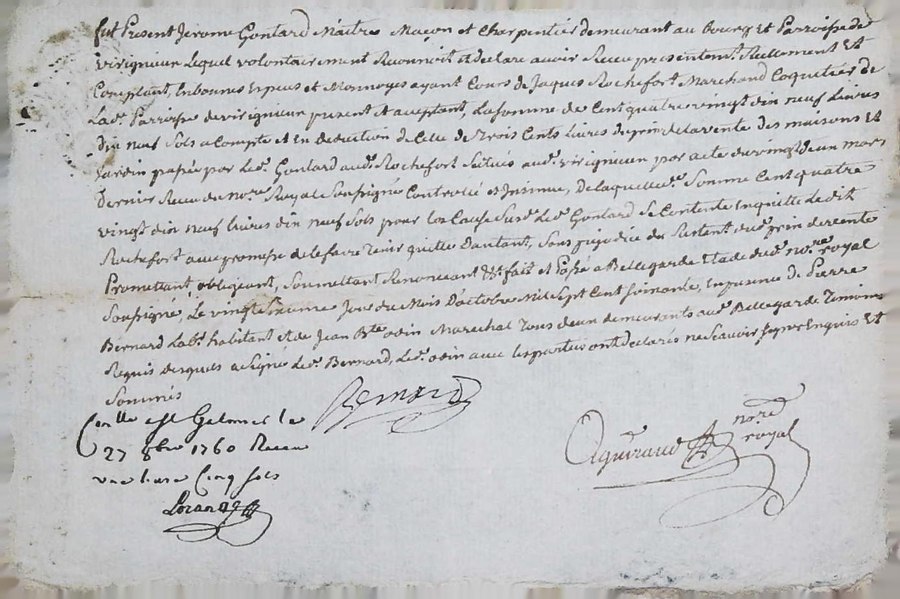 fut Present Jerome Gontard Maitre Maçon et Charpentier demeurant au Bourg et Parroisse de
virigneux Lequel volontairement Reconnoit et declare avoir Receu presentem.t Reellement Et
Comptant, En bonnes Especes et Monnoyes ayant Cours de Jaques Rochefort Marchand Coquetier de
Lad.e Parroisse de virigneux present et acceptant, La somme de Cent quatre vingt dix neuf Livres
dix neuf Sols a Compte et En deduction de Celle de Trois Cents Livres du prix de la vente des maisons Et
Jardin passée par Led.t Gontard aud.t Rochefort Situés aud.t virigneux par acte du vingt deux mars
Dernier Receu du no.re Royal Soussigné Controllé et Insinué, De laquelle d.e Somme Cent quatre
vingt dix neuf Livres dix neuf Sols pour la Cause Susd.e Led.t Gontard Se Contente En quitte led.t
Rochefort avec promesse de le faire tenir quitte D'autant, Sans prejudice du Restant dud.t prix de vente
Promettant, obligeant, Soumettant Renonceant &c fait et Passé a Bellegarde Etude du d.t no.re royal
Soussigné, Le vingt Jour du Mois D'octobre Mil Sept Cent Soixante, En presence de Pierre
Bernard Lab.r habitant et de Jean B.te odin Marechal Tous deux demeurants aud.t Bellegarde Temoins
Requis desquels a Signé Led.t Bernard, Led.t odin avec les parties ont declarés ne Scavoir Signer Enquis Et
Sommés
Bernard
Con.lle a St Galmier le
27 8bre 1760 Receu
une livre Cinq sols
no.re
royal